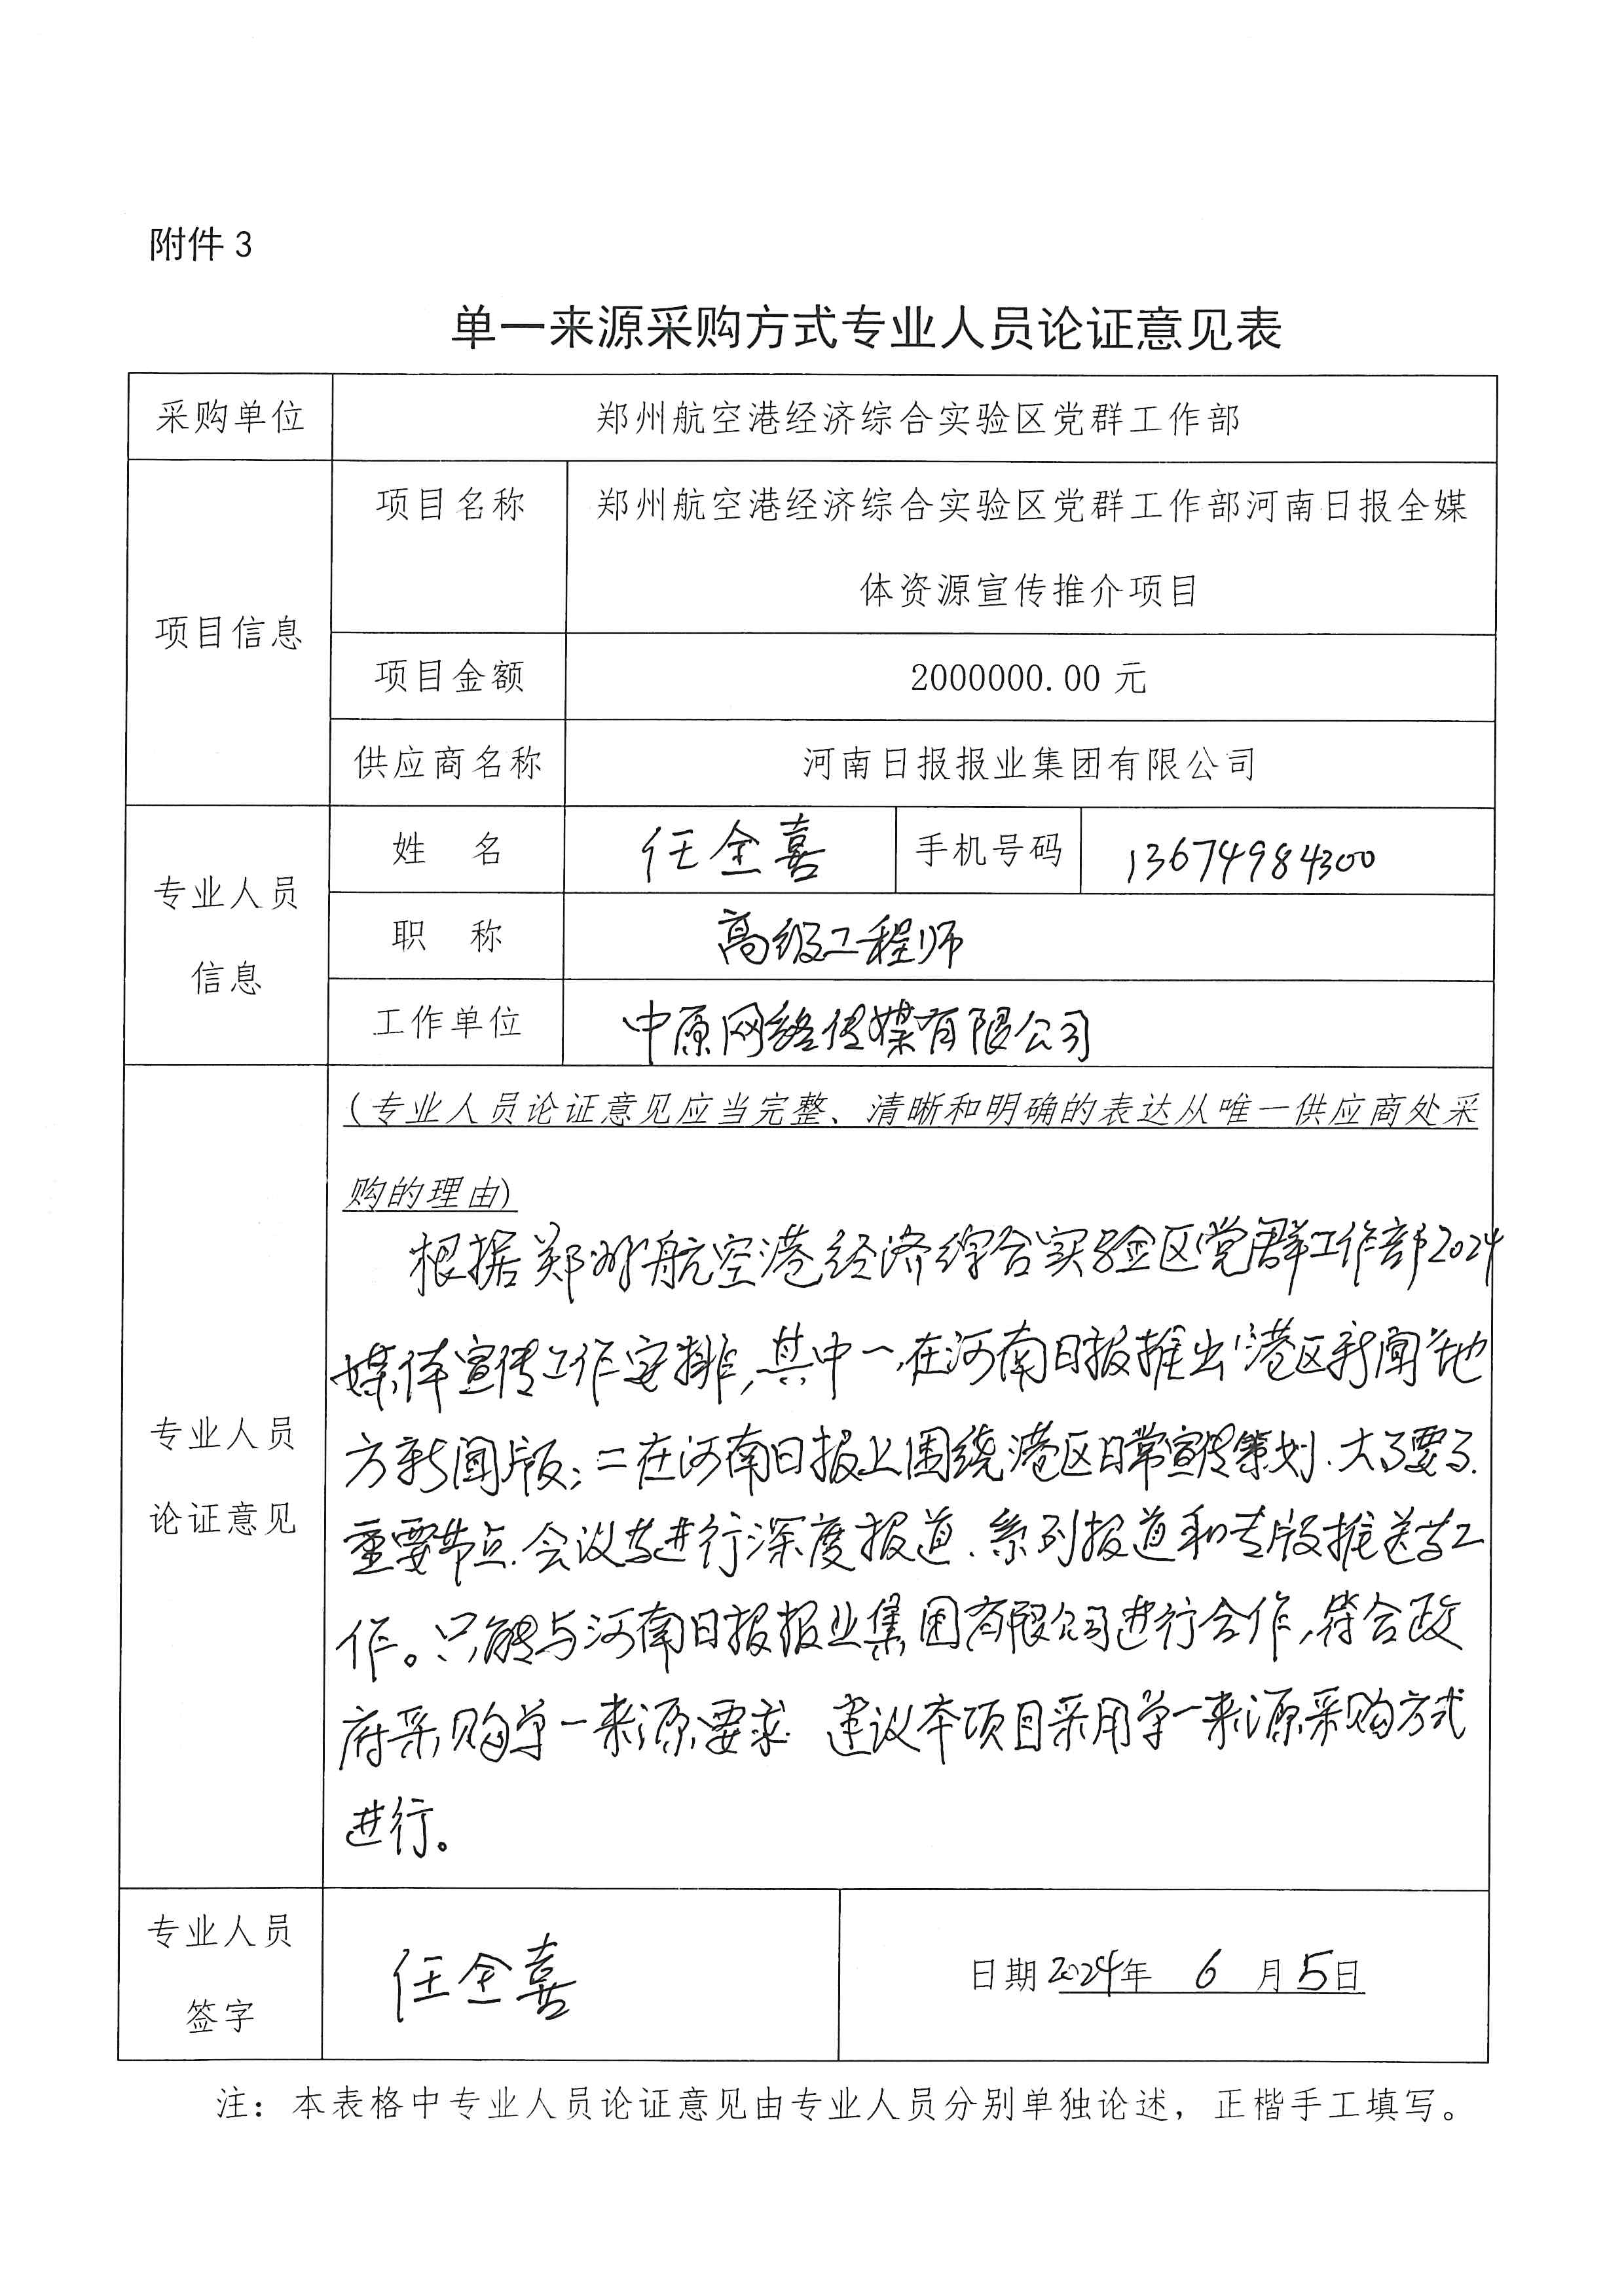 附件 3
单一来源采购方式专业人员论证意见表
采购单位 郑州航空港经济综合实验区党群工作部
项目信息
项目名称 郑州航空港经济综合实验区党群工作部河南日报全媒
体资源宣传推介项目
项目金额 2000000.00 元
供应商名称 河南日报报业集团有限公司
专业人员
信息
姓 名 任全喜 手机号码 13674984300
职 称 高级工程师
工作单位 中原网络传媒有限公司
专业人员
论证意见
(专业人员论证意见应当完整、清晰和明确的表达从唯一供应商处采
购的理由)
根据郑州航空港经济综合实验区党群工作部2024
媒体宣传工作安排,其中一、在河南日报推出“港区新闻”地
方新闻版;二在河南日报上围绕港区日常宣传策划、大事要事、
重要节点、会议等进行深度报道、系列报道和专版推送等工
作。只能与河南日报报业集团有限公司进行合作,符合政
府采购单一来源要求 建议本项目采用单一来源采购方式
进行。
专业人员
签字
任全喜
日期 2024年 6 月 5日
注：本表格中专业人员论证意见由专业人员分别单独论述，正楷手工填写。